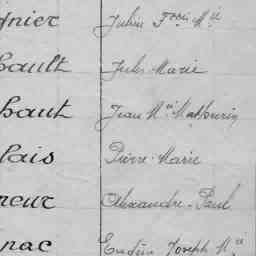 gnier Julien Fcois Mie
bault Jules Marie
haut Jean Mie Mathurin
lais Pierre Marie
neur Alexandre-Paul
nac Eugène Joseph Mie